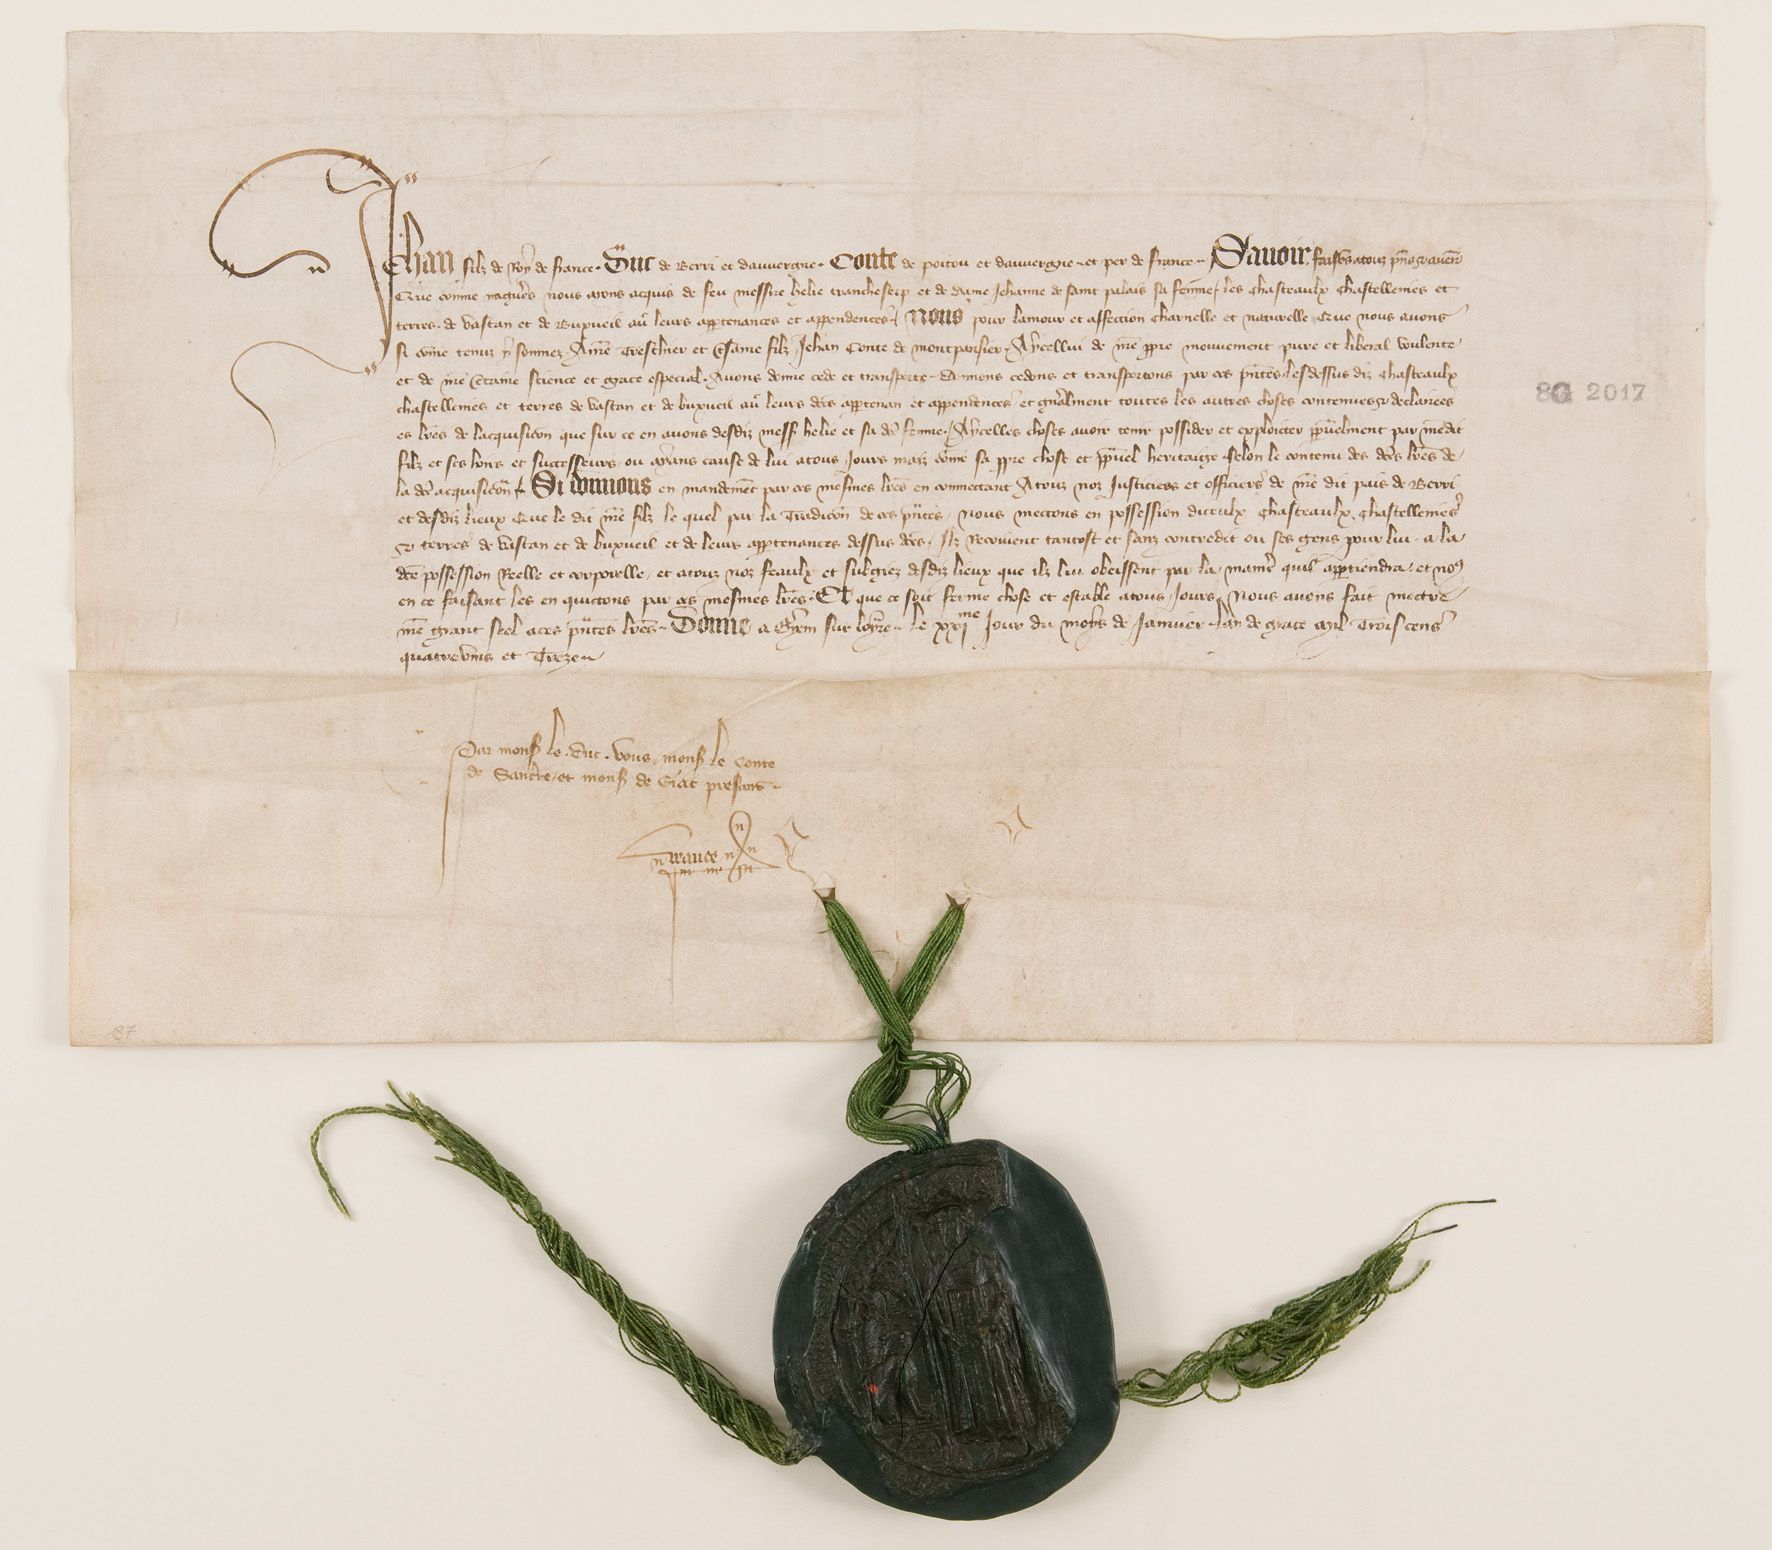 Jehan filz de Roy de france. Duc de Berri et dauvergne. Conte de poitou et dauvergne et per de france. Savoir faisons atouz pñs et avenir
Que comme nagueres nous avons acquis de feu messire helie trancheserp et de dame Jehanne de saint palais sa femme, les chasteaulx chastellenies et
terres de vastan et de Buxueil avec leurs appartenances et appendences. Nous pour lamour et affection charnelle et naturelle Que nous avons
si comme tenuz y sommez A nostre Treschier et Esame filz Jehan Conte de montpansier. A ycellui de nostre propre mouvement pure et liberal voulente
et de nostre certaine science et grace especial. Avons donne cede et transporte. Donnons cedons et transportons par ces presentes lesdessus diz chasteaulx
chastellenies et terres de vastan et de buxueil avec leurs dictes appartenan et appendences et generalment toutes les autres choses contenues et declairees
es lettres de lacquisicion que sur ce en avons desdiz mess helie et sa dicte femme. Aycelles choses avoir tenir possider et exploicter perpetuelment par nostredit
filz et ses hoirs et successeurs ou ayans cause de lui atous Jours mais comme sa propre chose et perpetuel heritaige selon le contenu des dictes lettres de
la dicte acquisicion. Si donnons en mandement par ces mesmes lettres en commectant Atouz noz Justiciers et officiers de nostre dit pais de Berri
et desdiz lieux Que le dit nostre filz le quel par la Tradicion de ces presentes nous mectons en possession diceulx chasteaulx, chastellenies
et terres de vastan et de buxueil et de leurs appartenances dessus dictes, Ilz Recoivent tantost et sanz contredit ou ses gens pour lui a la
dicte possession Reelle et corporelle, et atouz noz feaulx et subgiez desdiz lieux que ilz lui obeissent par la maniere quil appartiendra, et nous
en ce faisant les en quictons par ces mesmes lettres. Et que ce soit ferme chose et estable atous Jours Nous avons fait mectre
nostre grant seel aces presentes lettres. Donne a Gyem sur loyre le xxi me Jour du moys de Janvier lan de grace Mil Trois cens
quatrevins et Treze
8G 2017
Par mons le duc. vous, mons le Conte
de Sancerre, et mons de Giac presans
137